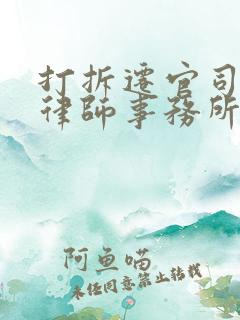 打拆遷官司
律師事務所
阿魚喵
未经同意禁止转载